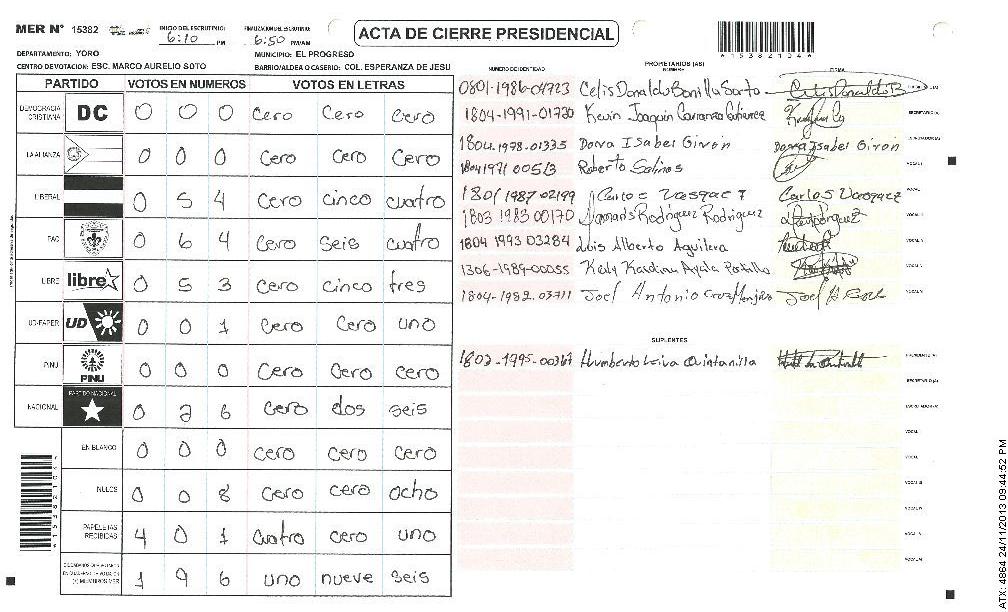 MER N° 15382
INICIO DEL ESCRUTINIO: 6:10 PM
FINALIZACION ESCRUTINIO: 6:50 PM/AM
ACTA DE CIERRE PRESIDENCIAL
A15382104
DEPARTAMENTO: YORO
MUNICIPIO: EL PROGRESO
CENTRO DE VOTACION: ESC. MARCO AURELIO SOTO
BARRIO/ALDEA O CASERIO: COL. ESPERANZA DE JESU
PARTIDO VOTOS EN NUMEROS VOTOS EN LETRAS
DEMOCRACIA CRISTIANA DC 0 0 0 Cero Cero Cero
LA ALIANZA 0 0 0 Cero Cero Cero
LIBERAL 0 5 4 Cero cinco cuatro
PAC 0 6 4 Cero seis cuatro
LIBRE libre 0 5 3 Cero cinco tres
UD-FAPER UD 0 0 1 Cero Cero uno
PINU PINU 0 0 0 Cero Cero cero
NACIONAL PARTIDO NACIONAL 0 2 6 Cero dos seis
EN BLANCO 0 0 0 cero cero cero
NULOS 0 0 8 Cero cero ocho
PAPELETAS RECIBIDAS 4 0 1 cuatro cero uno
(+) MIEMBROS MER 1 9 6 uno nueve seis
NUMERO DE IDENTIDAD PROPIETARIOS (AS) NOMBRE FIRMA
0801-1986-04723 Celis Donaldo Bonilla Sarto Celis Donaldo B
1804-1991-01730 Kevin Joaquin Carranza Gutierrez
1804-1978-01335 Dorra Isabel Giron Dorra Isabel Giron
1804 1971 00513 Roberto Salinas
1801 1987 02199 Carlos Vasquez Carlos Vasquez
1803 1983 00170 Damaris Rodriguez Rodriguez
1804 1993 03284 Luis Alberto Aguilera
1306-1989-00055 Kely Karolina Ayala Portillo
1804-1982-03711 Joel Antonio
SUPLENTES
1802-1995-00367 Humberto Leiva Quintanilla
ATX: 4864 24/11/2013 09:44:52 PM